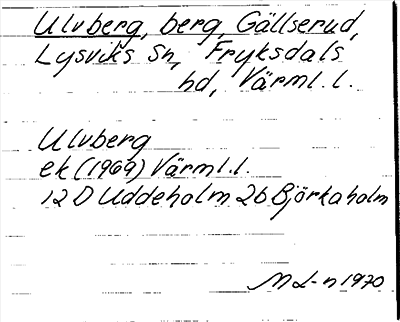 Ulvberg, berg, Gällserud,
Lysviks Sn, Fryksdals
hd, Värml. l.
Ulvberg
ek (1969) Värml. l.
12 D Uddeholm 2b Björkaholm
M L-n 1970